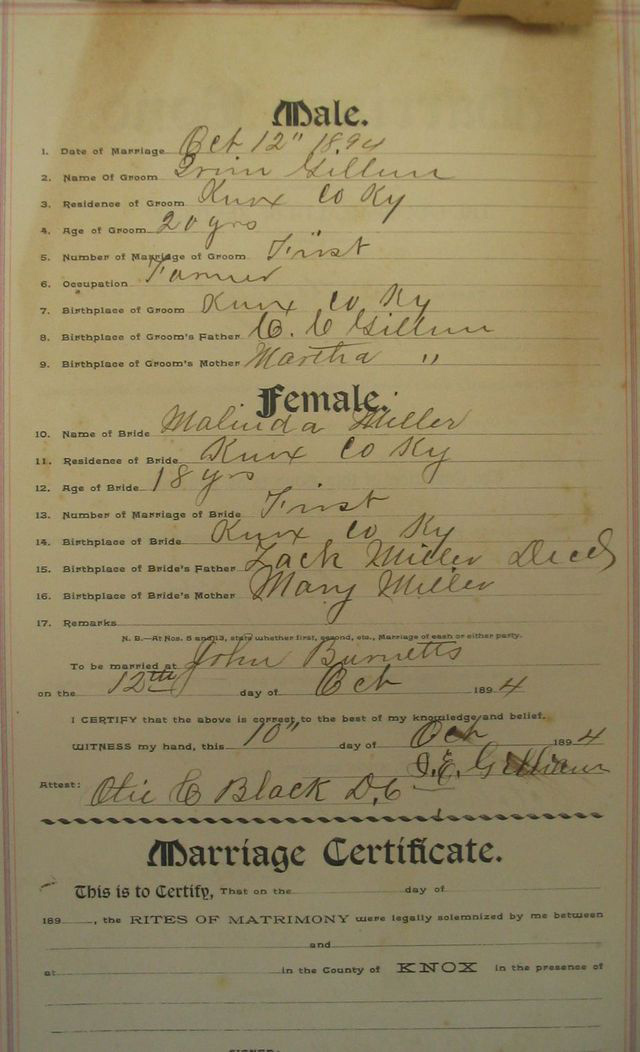 Male.
1. Date of Marriage Oct 12" 1894
2. Name Of Groom Irvin Gillum
3. Residence of Groom Knox Co Ky
4. Age of Groom 20 yrs
5. Number of Marriage of Groom First
6. Occupation Farmer
7. Birthplace of Groom Knox Co Ky
8. Birthplace of Groom's Father C. C Gillum
9. Birthplace of Groom's Mother Martha "
Female.
10. Name of Bride Malinda Miller
11. Residence of Bride Knox Co Ky
12. Age of Bride 18 yrs
13. Number of Marriage of Bride First
14. Birthplace of Bride Knox Co Ky
15. Birthplace of Bride's Father Zack Miller Decd
16. Birthplace of Bride's Mother Mary Miller
17. Remarks
N. B.—At Nos. 5 and 13, state whether first, second, etc., Marriage of each or either party.
To be married at John Burnetts
on the 12th day of Oct 1894
I CERTIFY that the above is correct to the best of my knowledge and belief.
WITNESS my hand, this 10" day of Oct 1894
J. E. Gilliam
Attest: Otie C Black D.C
Marriage Certificate.
This is to Certify, That on the day of
189 , the RITES OF MATRIMONY were legally solemnized by me between
and
at in the County of KNOX in the presence of